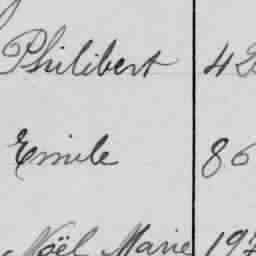 Philibert 42
Emile 86
Noël Marie 197